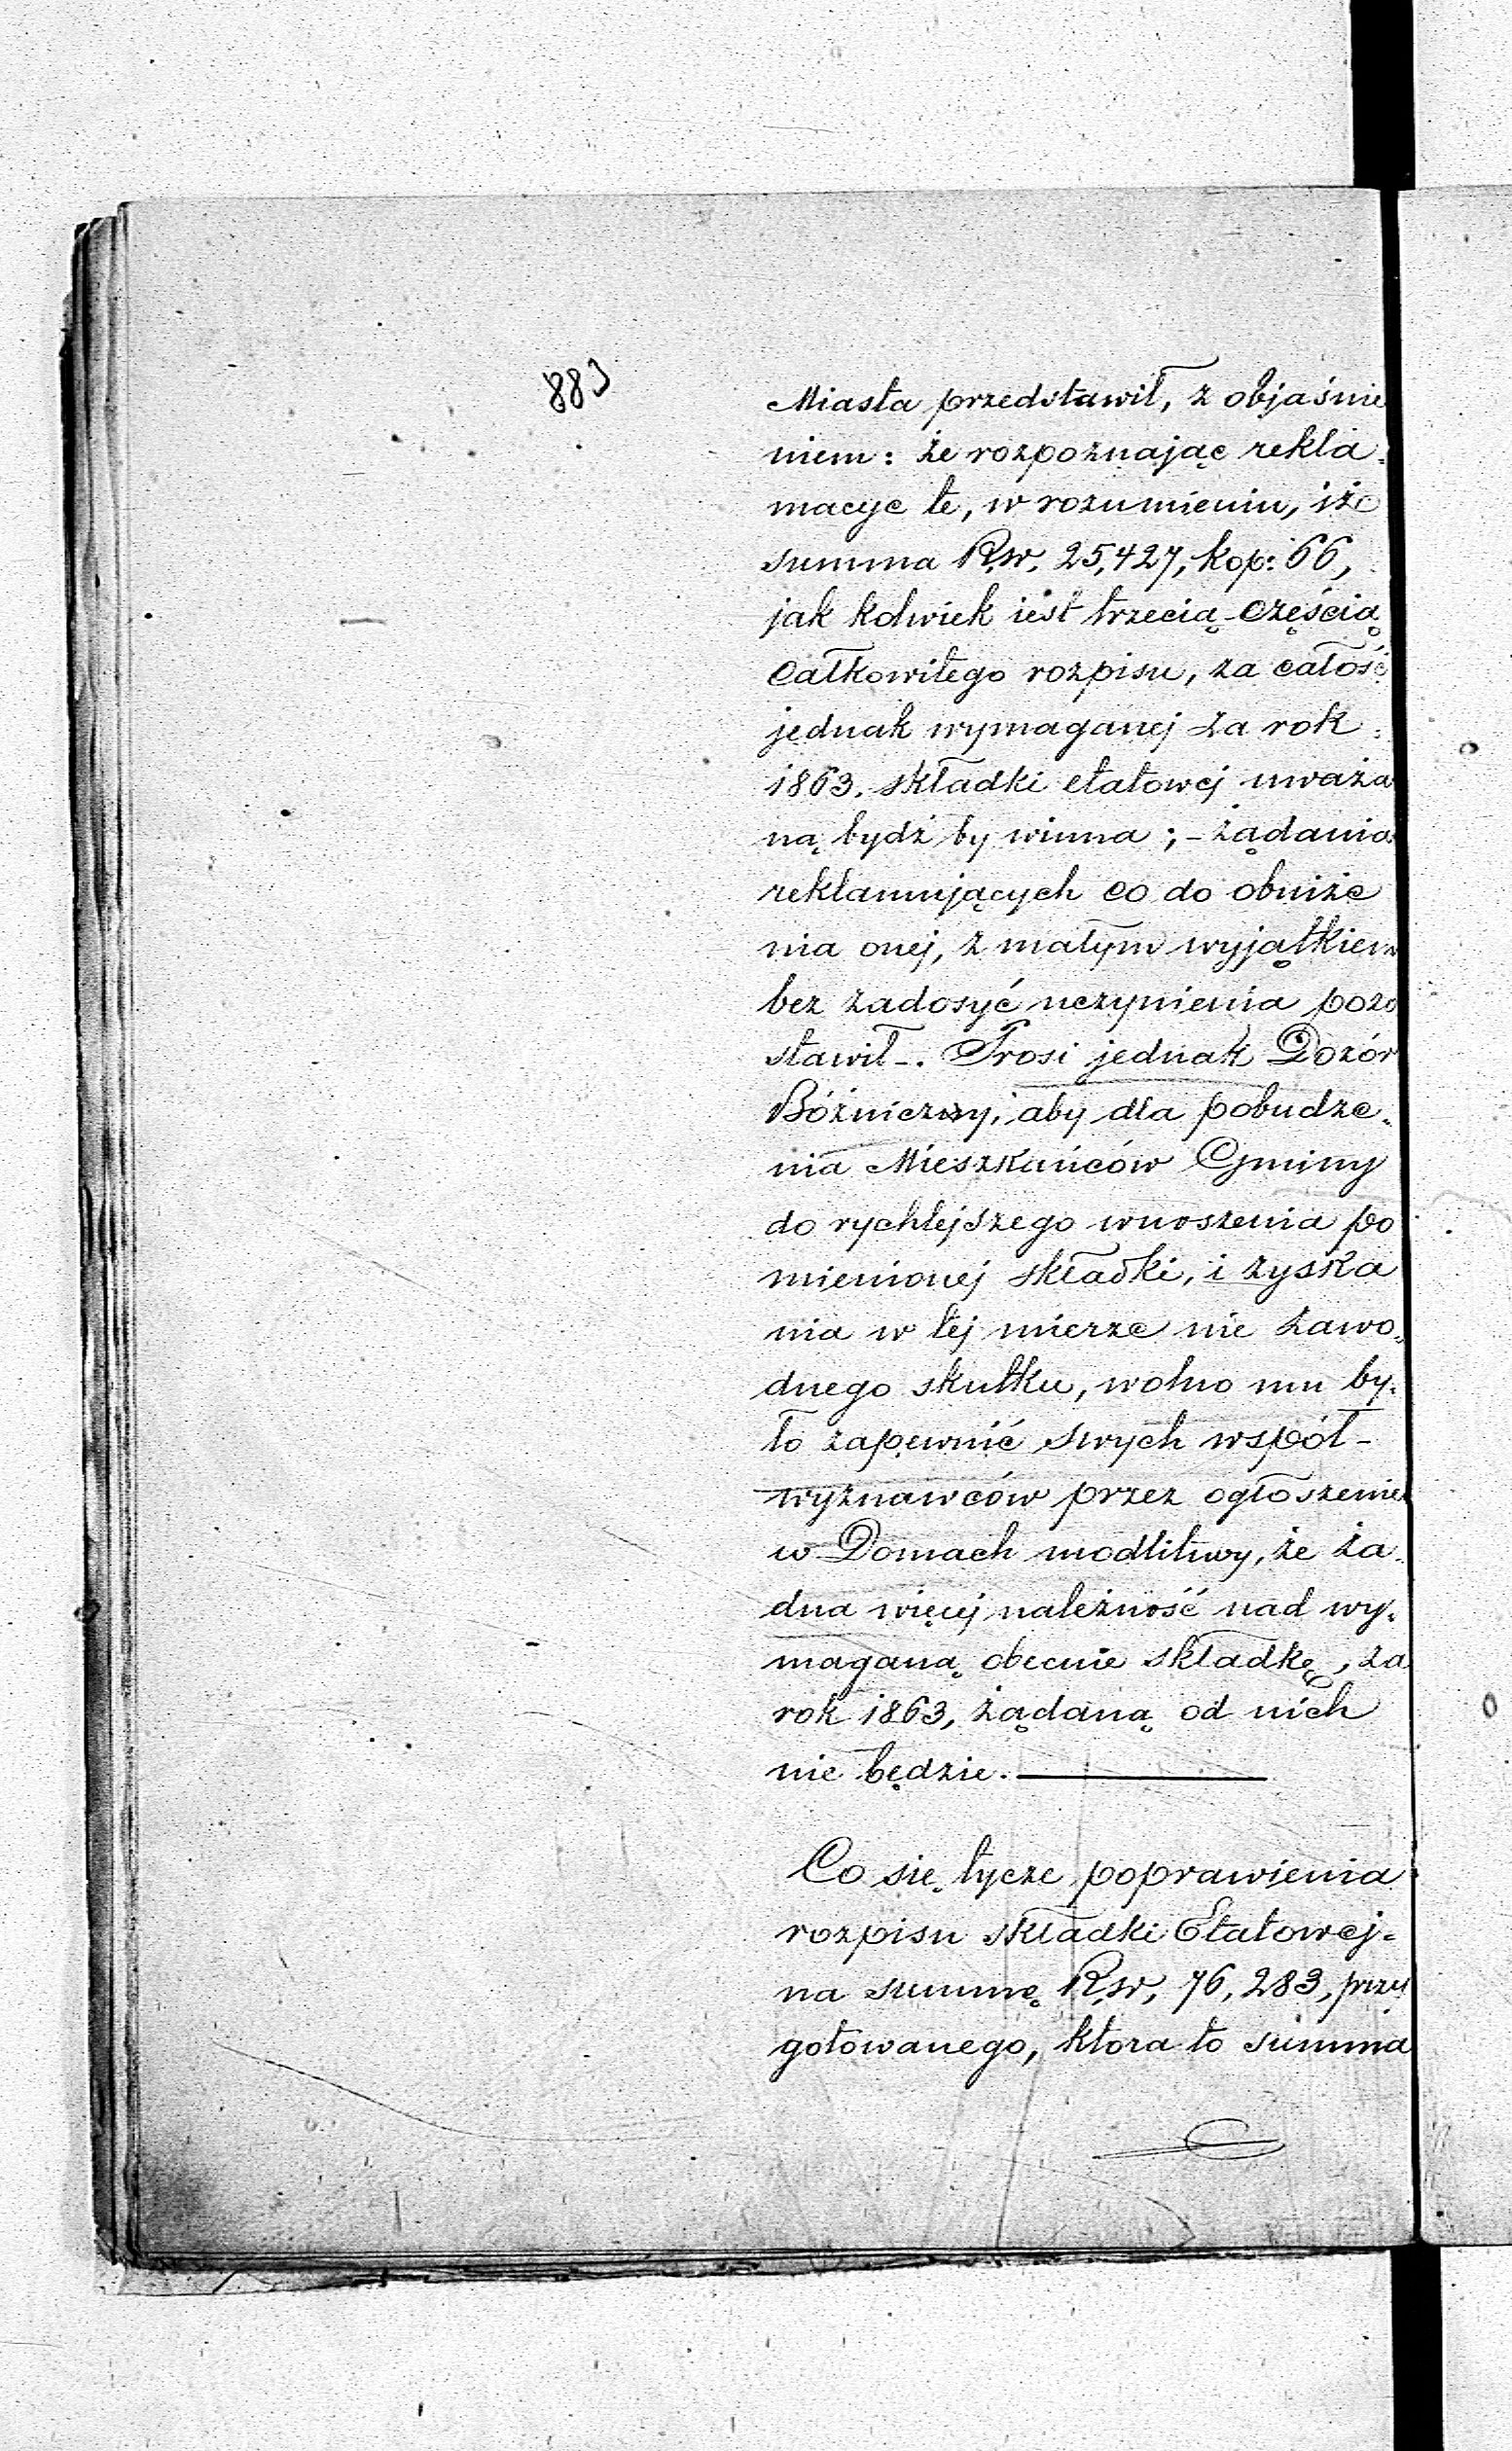 883
Miasta przedstawił, z objaśnie
niem: że rozpoznając rekla-
macye te, w rozumieniu, iże
summa Rs̄r. 25,427, kop: 66,
jak kolwiek iest trzecią częścią
całkowitego rozpisu, za całość
jednak wymaganej za rok
1863. składki etatowej uważa
ną bydź by winna; - żądania
reklamujących co do obniże
nia onej, z małym wyjątkiem
bez zadosyć uczynienia pozo
stawił -. Prosi jednak Dozór
Bóżniczny, aby dla pobudze-
nia Mieszkańców Gminy
do rychlejszego wnoszenia po
mienionej składki, i zyska
nia w tej mierze nie zawo-
dnego skutku, wolno mu by-
ło zapewnić swych współ-
wyznawców przez ogłoszenie
w Domach modlitwy, że ża-
dna więcej należność nad wy-
maganą obecnie składkę, za
rok 1863, żądaną od nich
nie będzie.
Co się tycze poprawienia
rozpisu składki Etatowej-
na summę Rsr, 76,283, przy
gotowanego, ktora to summa